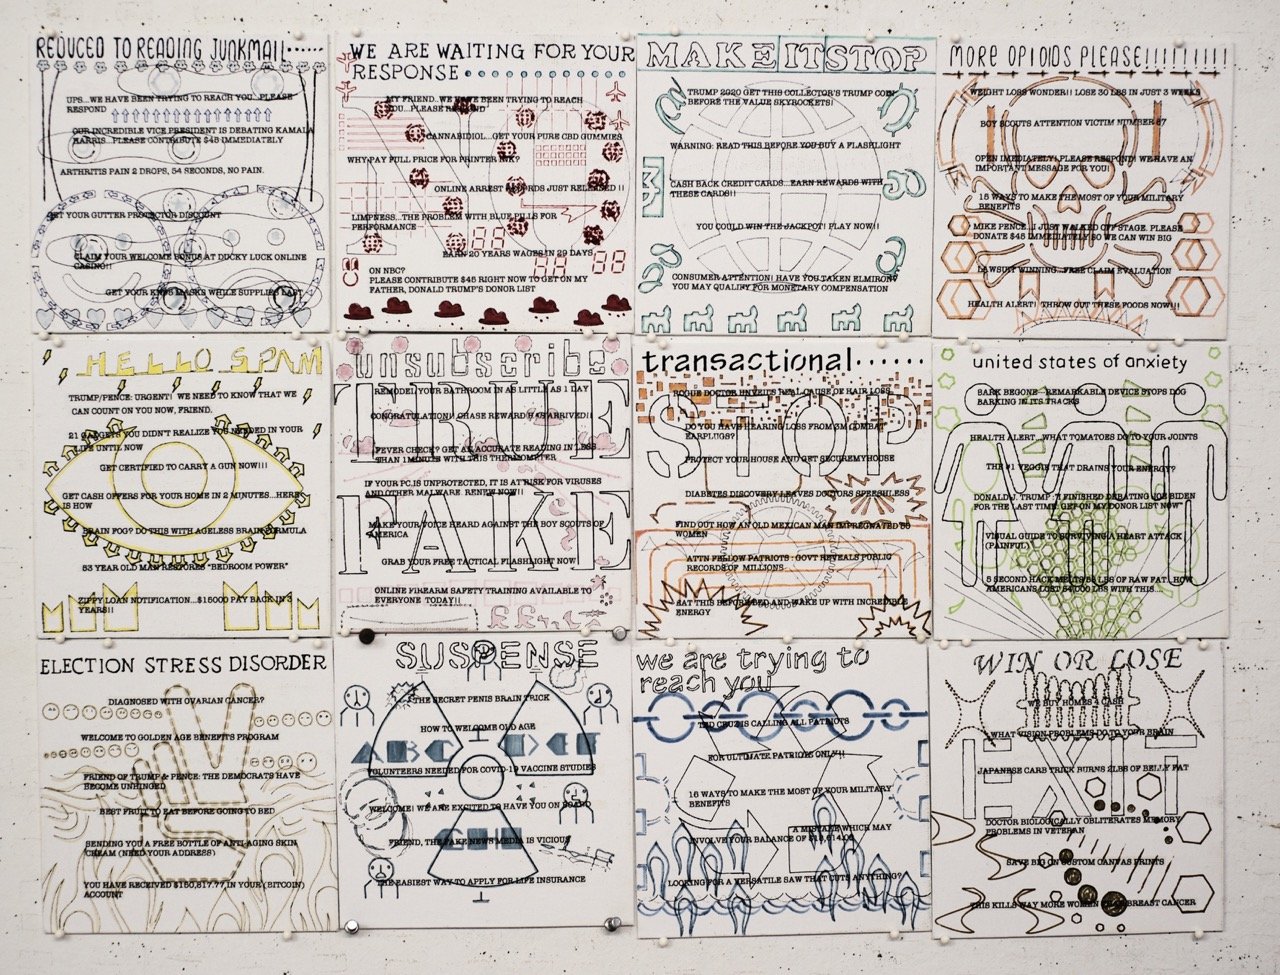 REDUCED TO READING JUNKMAIL......
UPS...WE HAVE BEEN TRYING TO REACH YOU...PLEASE
RESPOND
OUR INCREDIBLE VICE PRESIDENT IS DEBATING KAMALA
HARRIS...PLEASE CONTRIBUTE $45 IMMEDIATELY
ARTHRITIS PAIN 2 DROPS, 54 SECONDS, NO PAIN.
GET YOUR GUTTER PROTECTOR DISCOUNT
CLAIM YOUR WELCOME BONUS AT DUCKY LUCK ONLINE
CASINO!!
GET YOUR KN95 MASKS WHILE SUPPLIES LAST
WE ARE WAITING FOR YOUR
RESPONSE
MY FRIEND..WE HAVE BEEN TRYING TO REACH
YOU...PLEASE RESPOND
CANNABIDIOL...GET YOUR PURE CBD GUMMIES
WHY PAY FULL PRICE FOR PRINTER INK?
ONLINE ARREST RECORDS JUST RELEASED !!
LIMPNESS...THE PROBLEM WITH BLUE PILLS FOR
PERFORMANCE
EARN 20 YEARS WAGES IN 29 DAYS
ON NBC?
PLEASE CONTRIBUTE $45 RIGHT NOW TO GET ON MY
FATHER, DONALD TRUMP'S DONOR LIST
MAKE IT STOP
TRUMP 2020 GET THIS COLLECTOR'S TRUMP COIN
BEFORE THE VALUE SKYROCKETS!
WARNING: READ THIS BEFORE YOU BUY A FLASHLIGHT
CASH BACK CREDIT CARDS...EARN REWARDS WITH
THESE CARDS!!
YOU COULD WIN THE JACKPOT! PLAY NOW!!
CONSUMER ATTENTION! HAVE YOU TAKEN ELMIRON?
YOU MAY QUALIFY FOR MONETARY COMPENSATION
MORE OPIOIDS PLEASE!!!!!!!!!
WEIGHT LOSS WONDER!! LOSE 30 LBS IN JUST 3 WEEKS
BOY SCOUTS ATTENTION VICTIM NUMBER 67
OPEN IMEDIATELY! PLEASE RESPOND! WE HAVE AN
IMPORTANT MESSAGE FOR YOU!
15 WAYS TO MAKE THE MOST OF YOUR MILITARY
BENEFITS
MIKE PENCE: I JUST WALKED OFF STAGE. PLEASE
DONATE $45 IMMEDIATELY SO WE CAN WIN BIG
LAWSUIT WINNING...FREE CLAIM EVALUATION
HEALTH ALERT! THROW OUT THESE FOODS NOW!!!
HELLO SPAM
TRUMP/PENCE: URGENT! WE NEED TO KNOW THAT WE
CAN COUNT ON YOU NOW, FRIEND.
21 GADGETS YOU DIDN'T REALIZE YOU NEEDED IN YOUR
LIFE UNTIL NOW
GET CERTIFIED TO CARRY A GUN NOW!!!
GET CASH OFFERS FOR YOUR HOME IN 2 MINUTES...HERE
IS HOW
BRAIN FOG? DO THIS WITH AGELESS BRAIN FORMULA
53 YEAR OLD MAN RESTORES "BEDROOM POWER"
ZIPPY LOAN NOTIFICATION...$15000 PAY BACK IN 3
YEARS!!
unsubscribe
TRUE
FAKE
REMODEL YOUR BATHROOM IN AS LITTLE AS 1 DAY
CONGRATULATION! CHASE REWARD HAS ARRIVED!!
FEVER CHECK? GET AN ACCURATE READING IN LESS
THAN 1 MINUTE WITH THIS THERMOMETER
IF YOUR PC IS UNPROTECTED, IT IS AT RISK FOR VIRUSES
AND OTHER MALWARE. RENEW NOW!!
MAKE YOUR VOICE HEARD AGAINST THE BOY SCOUTS OF
AMERICA
GRAB YOUR FREE TACTICAL FLASHLIGHT NOW
ONLINE FIREARM SAFETY TRAINING AVAILABLE TO
EVERYONE TODAY!!
transactional......
STOP
ROGUE DOCTOR UNVEILS REAL CAUSE OF HAIR LOSS
DO YOU HAVE HEARING LOSS FROM 3M COMBAT
EARPLUGS?
PROTECT YOUR HOUSE AND GET SECUREMYHOUSE
DIABETES DISCOVERY LEAVES DOCTORS SPEECHLESS
FIND OUT HOW AN OLD MEXICAN MAN IMPREGNATED 50
WOMEN
ATTN FELLOW PATRIOTS : GOVT REVEALS PUBLIC
RECORDS OF MILLIONS
EAT THIS BEFORE BED AND WAKE UP WITH INCREDIBLE
ENERGY
united states of anxiety
BARK BEGONE - REMARKABLE DEVICE STOPS DOG
BARKING IN ITS TRACKS
HEALTH ALERT...WHAT TOMATOES DO TO YOUR JOINTS
THE #1 VEGGIE THAT DRAINS YOUR ENERGY?
DONALD J. TRUMP "I FINISHED DEBATING JOE BIDEN
FOR THE LAST TIME. GET ON MY DONOR LIST NOW"
VISUAL GUIDE TO SURVIVING A HEART ATTACK
(PAINFUL)
5 SECOND HACK MELTS LBS OF RAW FAT...HOW
AMERICANS LOST 54,000 LBS WITH THIS...
ELECTION STRESS DISORDER
DIAGNOSED WITH OVARIAN CANCER?
WELCOME TO GOLDEN AGE BENEFITS PROGRAM
FRIEND OF TRUMP & PENCE: THE DEMOCRATS HAVE
BECOME UNHINGED
BEST FRUIT TO EAT BEFORE GOING TO BED
SENDING YOU A FREE BOTTLE OF ANTI-AGING SKIN
CREAM (NEED YOUR ADDRESS)
YOU HAVE RECEIVED $150,817.77 IN YOUR (BITCOIN)
ACCOUNT
SUSPENSE
THE SECRET PENIS BRAIN TRICK
HOW TO WELCOME OLD AGE
ABC DEF
VOLUNTEERS NEEDED FOR COVID-19 VACCINE STUDIES
WELCOME! WE ARE EXCITED TO HAVE YOU ON BOARD
GHI
FRIEND, THE FAKE NEWS MEDIA IS VICIOUS
THE EASIEST WAY TO APPLY FOR LIFE INSURANCE
we are trying to
reach you
TED CRUZ IS CALLING ALL PATRIOTS
FOR ULTIMATE PATRIOTS ONLY!!
15 WAYS TO MAKE THE MOST OF YOUR MILITARY
BENEFITS
A MISTAKE WHICH MAY
INVOLVE YOUR BALANCE OF
LOOKING FOR A VERSATILE SAW THAT CUTS ANYTHING?
WIN OR LOSE
WE BUY HOMES 4 CASH
WHAT VISION PROBLEMS DO TO YOUR BRAIN
JAPANESE CARB TRICK BURNS 2LBS OF BELLY FAT
DOCTOR BIOLOGICALLY OBLITERATES MEMORY
PROBLEMS IN VETERAN
SAVE BIG ON CUSTOM CANVAS PRINTS
THIS KILLS WAY MORE WOMEN THAN BREAST CANCER